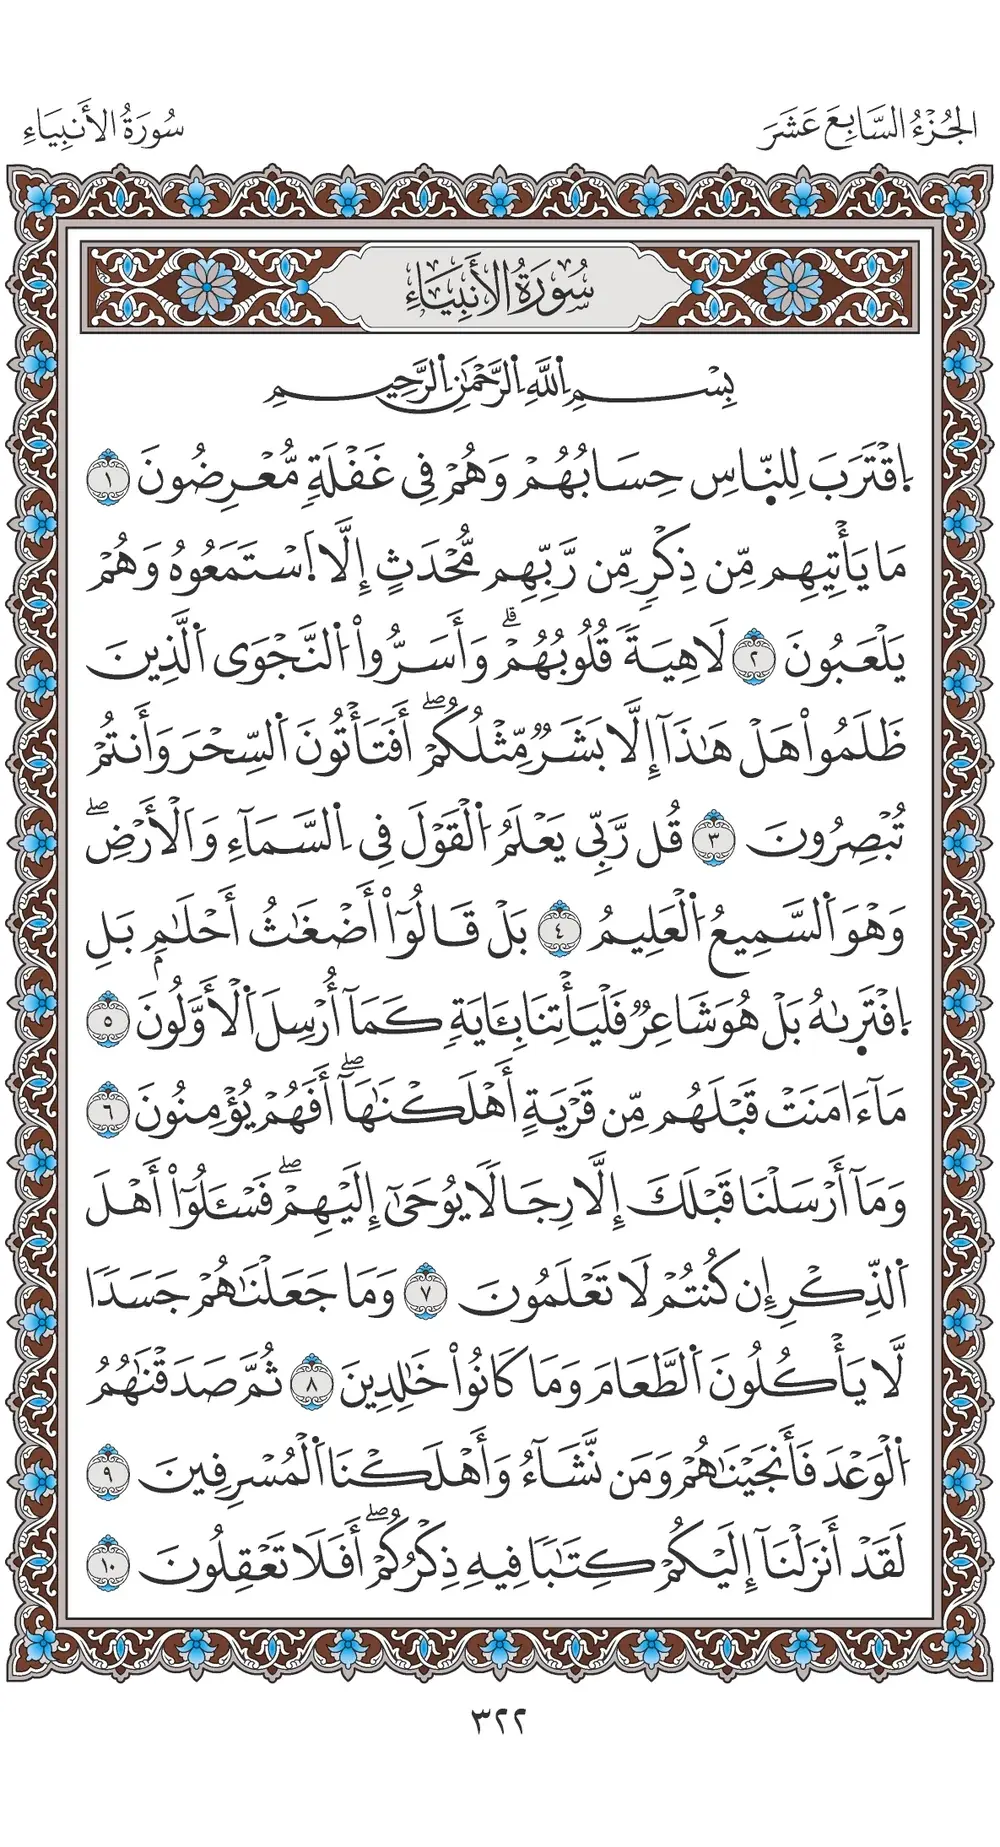 الجُزْءُ السَّابِعَ عَشَرَ
سُورَةُ الأَنبِيَاءِ
سُورَةُ الأَنبِيَاءِ
بِسْمِ اِ۬للَّهِ اِ۬لرَّحْمَٰنِ اِ۬لرَّحِيمِ
اِ۪قْتَرَبَ لِلنَّاسِ حِسَابُهُمْ وَهُمْ فِي غَفْلَةٍ مُّعْرِضُونَ ١
مَا يَأْتِيهِم مِّن ذِكْرٍ مِّن رَّبِّهِم مُّحْدَثٍ إِلَّا اَ۪سْتَمَعُوهُ وَهُمْ
يَلْعَبُونَ ٢ لَاهِيَةً قُلُوبُهُمْۗ وَأَسَرُّواْ اُ۬لنَّجْوَى اَ۬لَّذِينَ
ظَلَمُواْ هَلْ هَٰذَآ إِلَّا بَشَرٌ مِّثْلُكُمْۖ أَفَتَأْتُونَ اَ۬لسِّحْرَ وَأَنتُمْ
تُبْصِرُونَ ٣ قُل رَّبِّي يَعْلَمُ اُ۬لْقَوْلَ فِي اِ۬لسَّمَآءِ وَالْأَرْضِۖ
وَهْوَ اَ۬لسَّمِيعُ اُ۬لْعَلِيمُ ٤ بَلْ قَالُوٓاْ أَضْغَٰثُ أَحْلَٰمِۭ بَلِ
اِ۪فْتَرِىٰهُ بَلْ هُوَ شَاعِرٌ فَلْيَأْتِنَا بِـَٔايَةٍ كَمَآ أُرْسِلَ اَ۬لْأَوَّلُونَ ٥
مَآ ءَامَنَتْ قَبْلَهُم مِّن قَرْيَةٍ أَهْلَكْنَٰهَآۖ أَفَهُمْ يُؤْمِنُونَ ٦
وَمَآ أَرْسَلْنَا قَبْلَكَ إِلَّا رِجَالًا يُوحَىٰٓ إِلَيْهِمْۖ فَسْـَٔلُوٓاْ أَهْلَ
اَ۬لذِّكْرِ إِن كُنتُمْ لَا تَعْلَمُونَ ٧ وَمَا جَعَلْنَٰهُمْ جَسَدًا
لَّا يَأْكُلُونَ اَ۬لطَّعَامَ وَمَا كَانُواْ خَٰلِدِينَ ٨ ثُمَّ صَدَقْنَٰهُمُ
اُ۬لْوَعْدَ فَأَنجَيْنَٰهُمْ وَمَن نَّشَآءُ وَأَهْلَكْنَا اَ۬لْمُسْرِفِينَ ٩
لَقَدْ أَنزَلْنَآ إِلَيْكُمْ كِتَٰبًا فِيهِ ذِكْرُكُمْۖ أَفَلَا تَعْقِلُونَ ١٠
٣٢٢